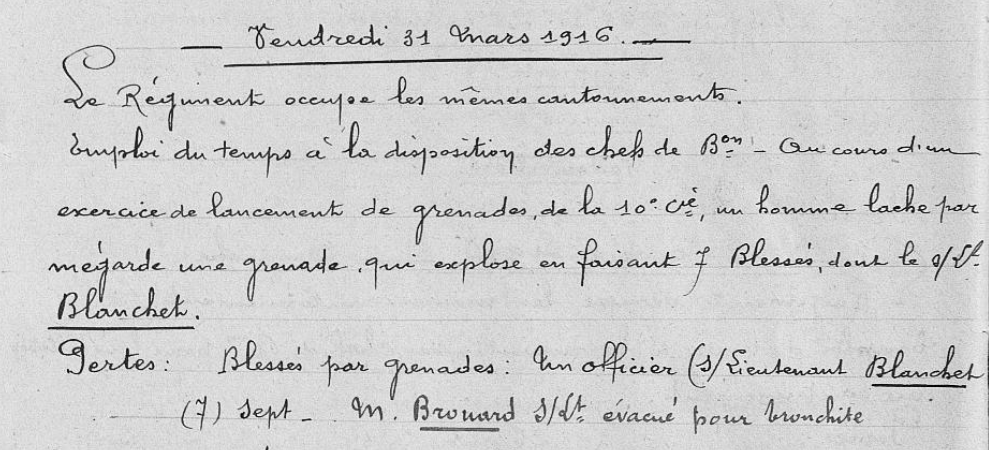 — Vendredi 31 Mars 1916. —
Le Régiment occupe les mêmes cantonnements.
Emploi du temps à la disposition des chefs de Bon - Au cours d'un
exercice de lancement de grenades, de la 10e Cie, un homme lache par
mégarde une grenade, qui explose en faisant 7 Blessés, dont le s/Lt
Blanchet.
Pertes: Blessés par grenades: Un officier (s/Lieutenant Blanchet
(7) Sept - M. Brouard S/Lt évacué pour bronchite